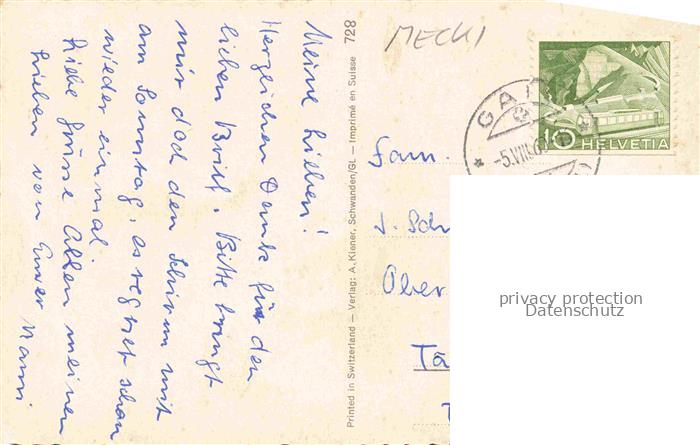 Meine Lieben!
Herzlichen Dank für den
lieben Brief. Bitte bringt
mir doch den Schirm mit
am Sonntag, es regnet schon
wieder einmal.
Liebe Grüsse Allen meinen
Lieben von Eurer Nanni
Printed in Switzerland — Verlag: A. Kiener, Schwanden/GL — Imprimé en Suisse 728
MECKI
GAI
-5.VIII.6
10 HELVETIA
Fam.
J. Sch
Ober
Tä
privacy protection
Datenschutz